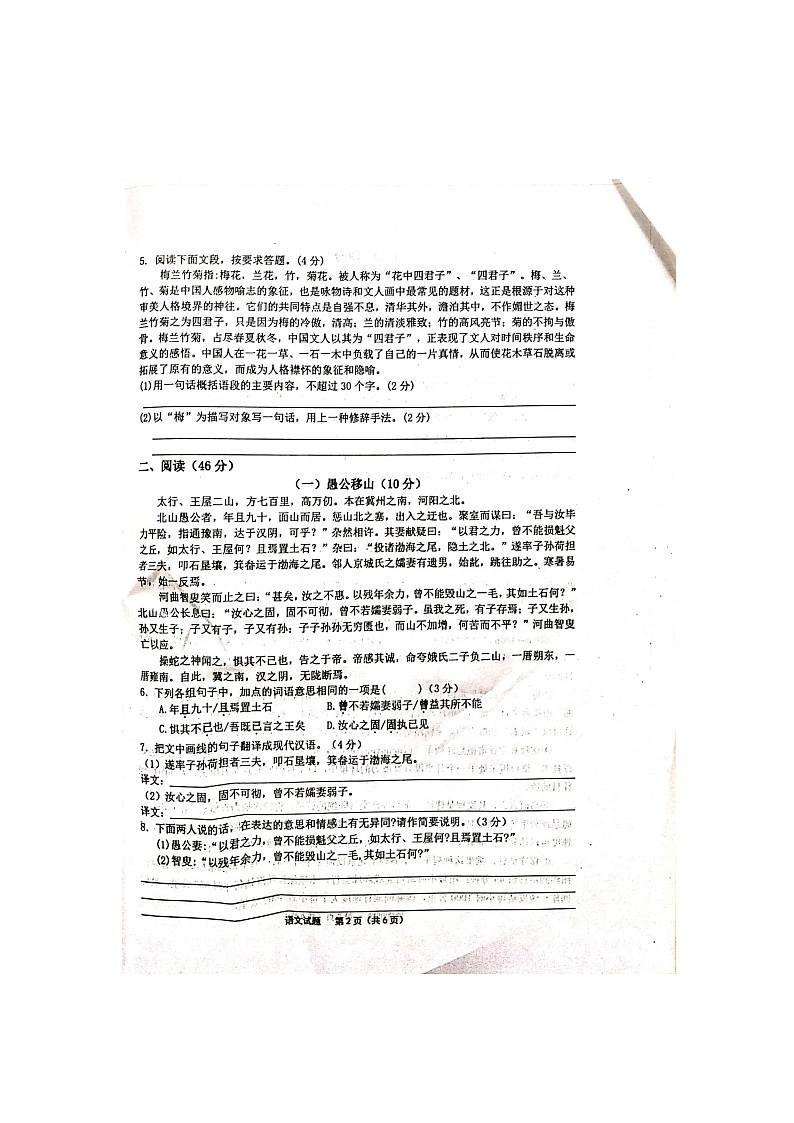 5. 阅读下面文段，按要求答题。(4 分)
梅兰竹菊指:梅花，兰花，竹，菊花。被人称为“花中四君子”、“四君子”。梅、兰、
竹、菊是中国人感物喻志的象征，也是咏物诗和文人画中最常见的题材，这正是根源于对这种
审美人格境界的神往。它们的共同特点是自强不息，清华其外，澹泊其中，不作媚世之态。梅
兰竹菊之为四君子，只是因为梅的冷傲，清高；兰的清淡雅致；竹的高风亮节；菊的不拘与傲
骨。梅兰竹菊，占尽春夏秋冬，中国文人以其为“四君子”，正表现了文人对时间秩序和生命
意义的感悟。中国人在一花一草、一石一木中负载了自己的一片真情，从而使花木草石脱离或
拓展了原有的意义，而成为人格襟怀的象征和隐喻。
(1)用一句话概括语段的主要内容，不超过 30 个字。(2 分)
(2)以“梅”为描写对象写一句话，用上一种修辞手法。(2 分)
二、阅读（46 分）
（一）愚公移山（10 分）
太行、王屋二山，方七百里，高万仞。本在冀州之南，河阳之北。
北山愚公者，年且九十，面山而居。惩山北之塞，出入之迂也。聚室而谋曰：“吾与汝毕
力平险，指通豫南，达于汉阴，可乎？”杂然相许。其妻献疑曰：“以君之力，曾不能损魁父
之丘，如太行、王屋何？且焉置土石？”杂曰：“投诸渤海之尾，隐土之北。”遂率子孙荷担
者三夫，叩石垦壤，箕畚运于渤海之尾。邻人京城氏之孀妻有遗男，始龀，跳往助之。寒暑易
节，始一反焉。
河曲智叟笑而止之曰：“甚矣，汝之不惠。以残年余力，曾不能毁山之一毛，其如土石何？”
北山愚公长息曰：“汝心之固，固不可彻，曾不若孀妻弱子。虽我之死，有子存焉；子又生孙，
孙又生子；子又有子，子又有孙；子子孙孙无穷匮也，而山不加增，何苦而不平？”河曲智叟
亡以应。
操蛇之神闻之，惧其不已也，告之于帝。帝感其诚，命夸娥氏二子负二山，一厝朔东，一
厝雍南。自此，冀之南，汉之阴，无陇断焉。
6. 下列各组句子中，加点的词语意思相同的一项是(　　)（3 分）
A.年且九十/且焉置土石 B.曾不若孀妻弱子/曾益其所不能
C.惧其不已也/吾既已言之王矣 D.汝心之固/固执己见
7. 把文中画线的句子翻译成现代汉语。（4 分）
（1）遂率子孙荷担者三夫，叩石垦壤，箕畚运于渤海之尾。
译文：
（2）汝心之固，固不可彻，曾不若孀妻弱子。
译文：
8. 下面两人说的话，在表达的意思和情感上有无异同?请作简要说明。（3 分）
(1)愚公妻：“以君之力，曾不能损魁父之丘，如太行、王屋何?且焉置土石?”
(2)智叟：“以残年余力，曾不能毁山之一毛,其如土石何?”
语文试题 第 2 页（共 6 页）